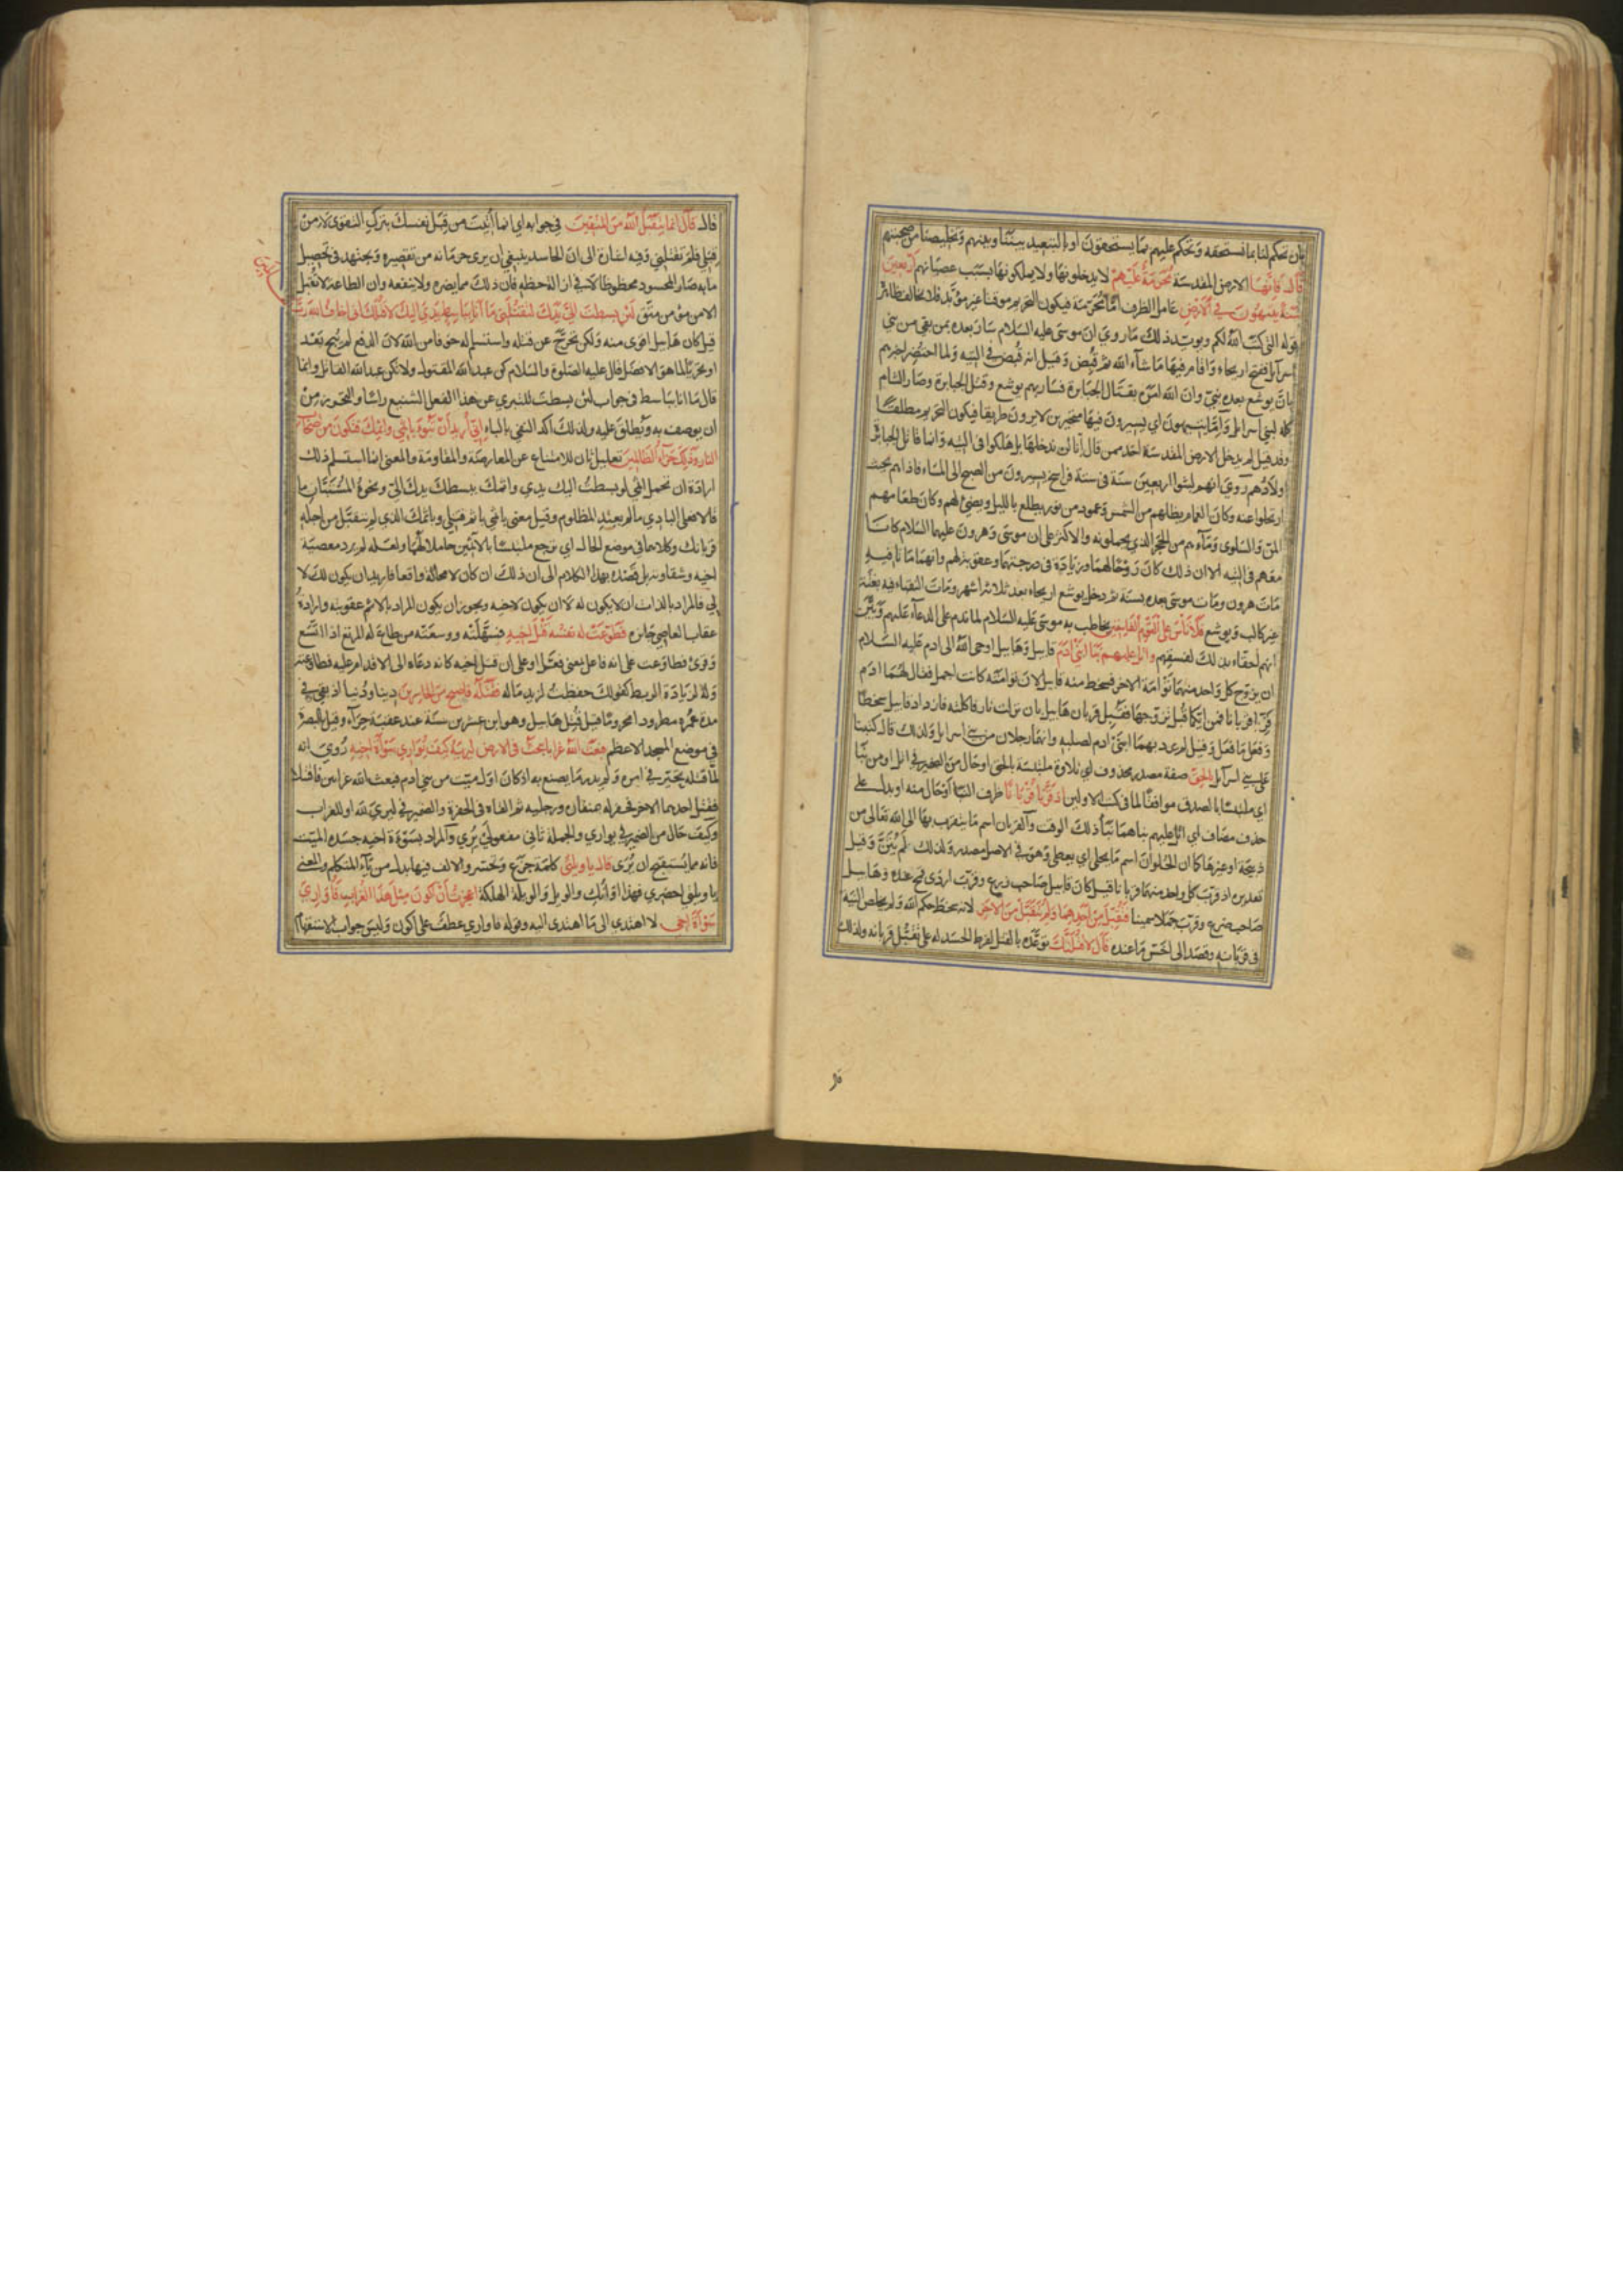 بان تحكم لنا بما نستحقه وتحكم عليهم بما يستحقون او بالتبعيد بيننا وبينهم وتخليصنا من صحبتهم
قال فانها الارض المقدسة محرمة عليهم لا يدخلونها ولا يملكونها بسبب عصيانهم اربعين
سنة يتيهون في الارض عامل الظرف اما محرمة فيكون التحريم موقتا غير مؤبد فلا يخالف ظاهر
قوله التي كتب الله لكم ويويد ذلك ما روي ان موسى عليه السلام سار بعده بمن بقي من بني
اسرآيل ففتح اريحاء واقام فيها ما شآء الله ثم قبض وقيل انه قبض في التيه ولما احتضر اخبرهم
بان يوشع بعده نبي وان الله امره بقتال الجبابرة فسار بهم يوشع وقتل الجبابرة وصار الشام
كله لبني اسرائل واما يتيهون اي يسيرون فيها متحيرين لا يرون طريقا فيكون التحريم مطلقا
وقد قيل لم يدخل الارض المقدسة احد ممن قال انا لن ندخلها بل هلكوا في التيه وانما قاتل الجبابرة
اولادهم روي انهم لبثوا اربعين سنة في ستة فراسخ يسيرون من الصبح الى المساء فاذا هم بحيث
ارتحلوا عنه وكان الغمام يظلهم من الشمس وعمود من نور يطلع بالليل ويضئ لهم وكان طعامهم
المن والسلوى ومآءهم من الحجر الذي يحملونه والاكثر على ان موسى وهرون عليهما السلام كانا
معهم في التيه الا ان ذلك كان روحا لهما وزيادة في درجتهما وعقوبة لهم وانهما ماتا فيه
مات هرون ومات موسى بعده بسنة ثم دخل يوشع اريحاء بعد ثلاثة اشهر ومات النقباء فيه بغتة
غير كالب ويوشع فلا تأس على القوم الفاسقين خاطب به موسى عليه السلام لما ندم على الدعآء عليهم وبين
انهم احقاء بذلك لفسقهم واتل عليهم نبا ابني ادم قابيل وهابيل اوحى الله الى ادم عليه السلام
ان يزوج كل واحد منهما توأمة الاخر فسخط منه قابيل لان توأمته كانت اجمل فقال لهما ادم
قربا قربانا فمن ايكما قبل تزوجها فقبل قربان هابيل بان نزلت نار فاكلته فازداد قابيل سخطا
وفعل ما فعل وقيل لم يرد بهما ابني ادم لصلبه وانهما رجلان من بني اسرايل ولذلك قال كتبنا
على بني اسرآيل بالحق صفة مصدر محذوف اي تلاوة ملتبسة بالحق او حال من الضمير في اتل او من نبأ
اي ملتبسا بالصدق موافقا لما في كتب الاولين اذ قربا قربانا ظرف النبا او حال منه او بدل على
حذف مضاف اي اتل عليهم نباهما نبأ ذلك الوقت والقربان اسم ما يتقرب بها الى الله تعالى من
ذبيحة او غيرها كما ان الحلوان اسم ما يحلى اي يعطى وهو في الاصل مصدر ولذلك لم يثن وقيل
تقديره اذ قرب كل واحد منهما قربانا قيل كان قابيل صاحب زرع وقرب اردى قمح عنده وهابيل
صاحب ضرع وقرب جملا سمينا فتقبل من احدهما ولم يتقبل من الاخر لانه سخط حكم الله ولم يخلص النية
في قربانه وقصد الى اخس ما عنده قال لاقتلنك توعده بالقتل لفرط الحسد له على تقبل قربانه ولذلك
قال قال انما يتقبل الله من المتقين في جوابه اي انما اتيت من قبل نفسك بترك التقوى لا من
قبلي فلم تقتلني وفيه اشارة الى ان الحاسد ينبغي ان يرى حرمانه من تقصيره ويجتهد في تحصيل
ما به صار المحسود محظوظا لا في ازالة حظه فان ذلك مما يضره ولا ينفعه وان الطاعة لا تقبل
الا من مؤمن متق لئن بسطت الي يدك لتقتلني ما انا بباسط يدي اليك لاقتلك اني اخاف الله رب
قيل كان هابيل اقوى منه ولكن تحرج عن قتله واستسلم له خوفا من الله لان الدفع لم يبح بعد
او تحريا لما هو الافضل قال عليه الصلوة والسلام كن عبد الله المقتول ولا تكن عبد الله القاتل وانما
قال ما انا بباسط في جواب لئن بسطت للتبري عن هذا الفعل الشنيع راسا والتحرز من
ان يوصف به ويطلق عليه ولذلك اكد النفي بالباء اني أريد أن تبوء باثمي واثمك فتكون من اصحاب
النار وذلك جزآء الظالمين تعليل ثان للامتناع عن المعارضة والمقاومة والمعنى انما استسلم ذلك
ارادة ان تحمل اثمي لو بسطت اليك يدي واثمك ببسطك يدك الي ونحوه المستبان ما
قالا فعلى البادي ما لم يعتد المظلوم وقيل معنى باثمي باثم قتلي وباثمك الذي لم يتقبل من اجله
قربانك وكلاهما في موضع الحال اي ترجع ملتبسا بالاثمين حاملا لهما ولعله لم يرد معصية
اخيه وشقاوته بل قصده بهذا الكلام الى ان ذلك ان كان لا محالة واقعا فاريد ان يكون لك لا
لي فالمراد بالذات ان لا يكون له لا ان يكون لاخيه ويجوز ان يكون المراد بالاثم عقوبته وارادة
عقاب العاصي جايزه فطوعت له نفسه قتل اخيه فسهلته ووسعته من طاع له المرتع اذا اتسع
وقرئ فطاوعت على انه فاعل بمعنى فعل او على ان قتل اخيه كانه دعاه الى الاقدام عليه فطاوعته
وله لزيادة الربط كقولك حفظت لزيد ماله فقتله فاصبح من الخاسرين دينا ودنيا اذ بقي في
مدة عمره مطرودا محزونا قيل قتل هابيل وهو ابن عشرين سنة عند عقبة حرآء وقيل بالبصرة
في موضع المسجد الاعظم فبعث الله غرابا يبحث في الارض ليريه كيف يواري سوأة اخيه روي انه
لما قتله تحير في امره ولم يدر ما يصنع به اذ كان اول ميت من بني ادم فبعث الله غرابين فاقتتلا
فقتل احدهما الاخر فحفر له بمنقاره ورجليه ثم القاه في الحفرة والضمير في ليري لله او للغراب
وكيف حال من الضمير في يواري والجملة ثاني مفعولي يري والمراد بسوءة اخيه جسده الميت
فانه مما يستقبح ان يرى قال يا ويلتى كلمة جزع وتحسر والالف فيها بدل من يآء المتكلم والمعنى
يا ويلتي احضري فهذا اوانك والويل والويلة الهلكة اعجزت أن اكون مثل هذا الغراب فأواري
سوأة اخي لا اهتدي الى ما اهتدى اليه وقوله فاواري عطف على اكون وليس جواب الاستفهام